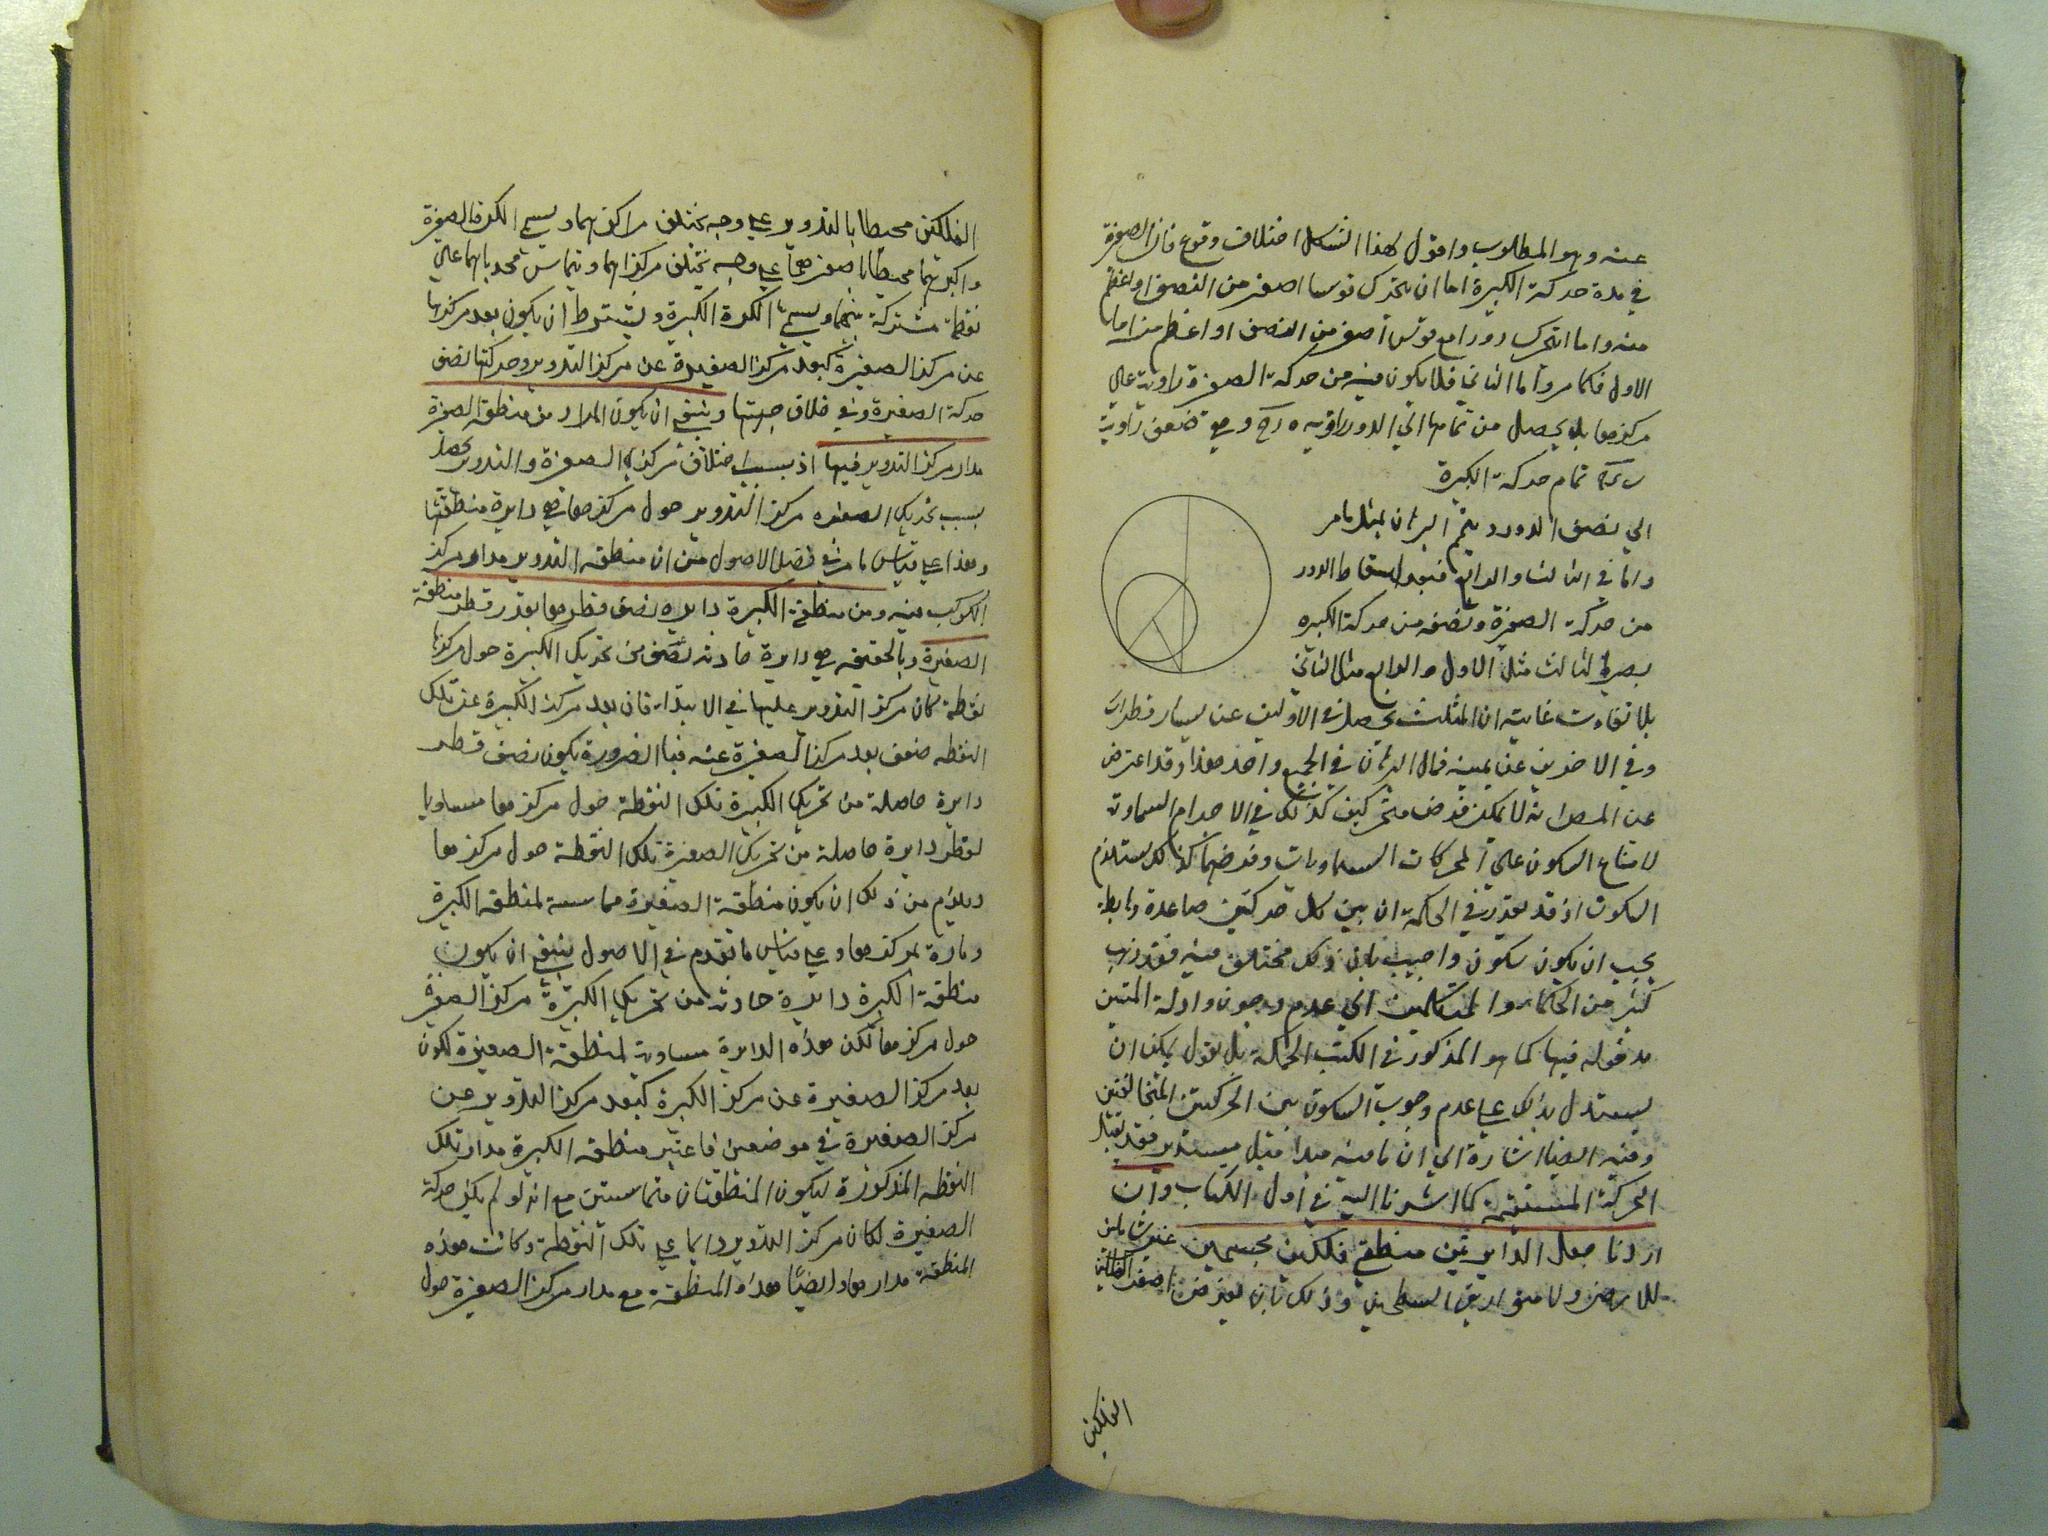 عنه وهو المطلوب واقول لهذا الشكل اختلاف وقوع فان الصغيرة
في مدة حركة الكبيرة اما ان يتحرك قوسا اصغر من النصف او اعظم
منه واما ان يتحرك دورا مع قوس اصغر من النصف او اعظم منه اما
الاول فكما مر واما الثاني فلا يكون فيه من حركة الصغيرة زاوية على
مركزها بل يحصل من تمامها الى الدور زاوية وهي ضعف زاوية
تمام حركة الكبيرة
الى نصف الدور ويتم البرهان بمثل ما مر
واما في الثالث والرابع فبعد اسقاط الدور
من حركة الصغيرة ونصفه من حركة الكبيره
يصير الثالث مثل الاول والرابع مثل الثاني
بلا تفاوت غايته ان المثلث يحصل في الاولين عن يسار قطر
وفي الاخرين عن يمينه فمال البرهان في الجميع واحد هذا وقد اعترض
عن المص انه لا يمكن فرض متحركين كذلك في الاجرام السماوية
لامتناع السكون على المحركات السماويات وفرضهما كذلك يستلزم
السكون اذ قد تقرر في الحكمة ان بين كل حركتين صاعدة وهابطة
يجب ان يكون سكون واجيب بان ذلك مختلف فيه فقد ذهب
كثير من الحكماء والمتكلمين الى عدم وجوبه وادلة المثبتين
مدخولة فيها كما هو المذكور في الكتب الحكمية بل نقول يمكن ان
يستدل بذلك على عدم وجوب السكون بين الحركتين المتخالفتين
وفيه ايضا اشارة الى ان ما فيه مبدا ميل مستدير فقد يقبل
الحركة المستقيمة كما اشرنا اليه في اول الكتاب وان
اردنا جعل الدايرتين منطقتي فلكين مجسمين غير شاملين
للارض ولا متوازيي السطحين وذلك بان نفرض اصغر الفلكين
الفلكين
الفلكين محيطا بالتدوير على وجه يختلف مركزهما ويسمى الكرة الصغيرة
واكبرهما محيطا باصغرهما على وجه يختلف مركزاهما ويتماس محدباهما على
نقطة مشتركة بينهما ويسمى الكرة الكبيرة ويشترط ان يكون بعد مركزها
عن مركز الصغيرة كبعد مركز الصغيرة عن مركز التدوير وحركتها نصف
حركة الصغيرة وفي خلاف جهتها وينبغي ان يكون المراد من منطقة الصغيرة
مدار مركز التدوير فيها اذ بسبب اختلاف مركزي الصغيرة والتدوير يحصل
بسبب تحريك الصغيره مركز التدوير حول مركزها هي دايرة منطقتها
وهذا على قياس ما مر في فصل الاصول من ان منطقه التدوير مدار مركز
الكوكب فيه ومن منطقة الكبيرة دايره نصف قطرها بقدر قطر منطقة
الصغيرة وبالحقيقه هي دايرة حادثه نصف من تحريك الكبيرة حول مركزها
نقطة كان مركز التدوير عليها في الابتداء فان بعد مركز الكبيرة عن تلك
النقطه ضعف بعد مركز الصغيرة عنه فبالضرورة يكون نصف قطر
دايرة حاصلة من تحريك الكبيرة تلك النقطة حول مركزها مساويا
لقطر دايرة حاصلة من تحريك الصغيرة تلك النقطة حول مركزها
ويلزم من ذلك ان يكون منطقة الصغيرة مماسة لمنطقة الكبيرة
ومارة بمركزها وعلى قياس ما تقدم في الاصول ينبغي ان يكون
منطقة الكبيرة دايرة حادثه من تحريك الكبيرة مركز الصغيرة
حول مركزها لكن هذه الدايرة مساوية لمنطقة الصغيرة لكون
بعد مركز الصغيرة عن مركز الكبيرة كبعد مركز التدوير عن
مركز الصغيرة في موضعين فاعتبر منطقة الكبيرة مدار تلك
النقطه المذكورة ليكون المنطقتان متماستين مع انه لو لم يكن حركة
الصغيرة لكان مركز التدوير دايما على تلك النقطة وكانت هذه
المنطقة مدارها وايضا هذه المنطقة مع مدار مركز الصغيرة حول